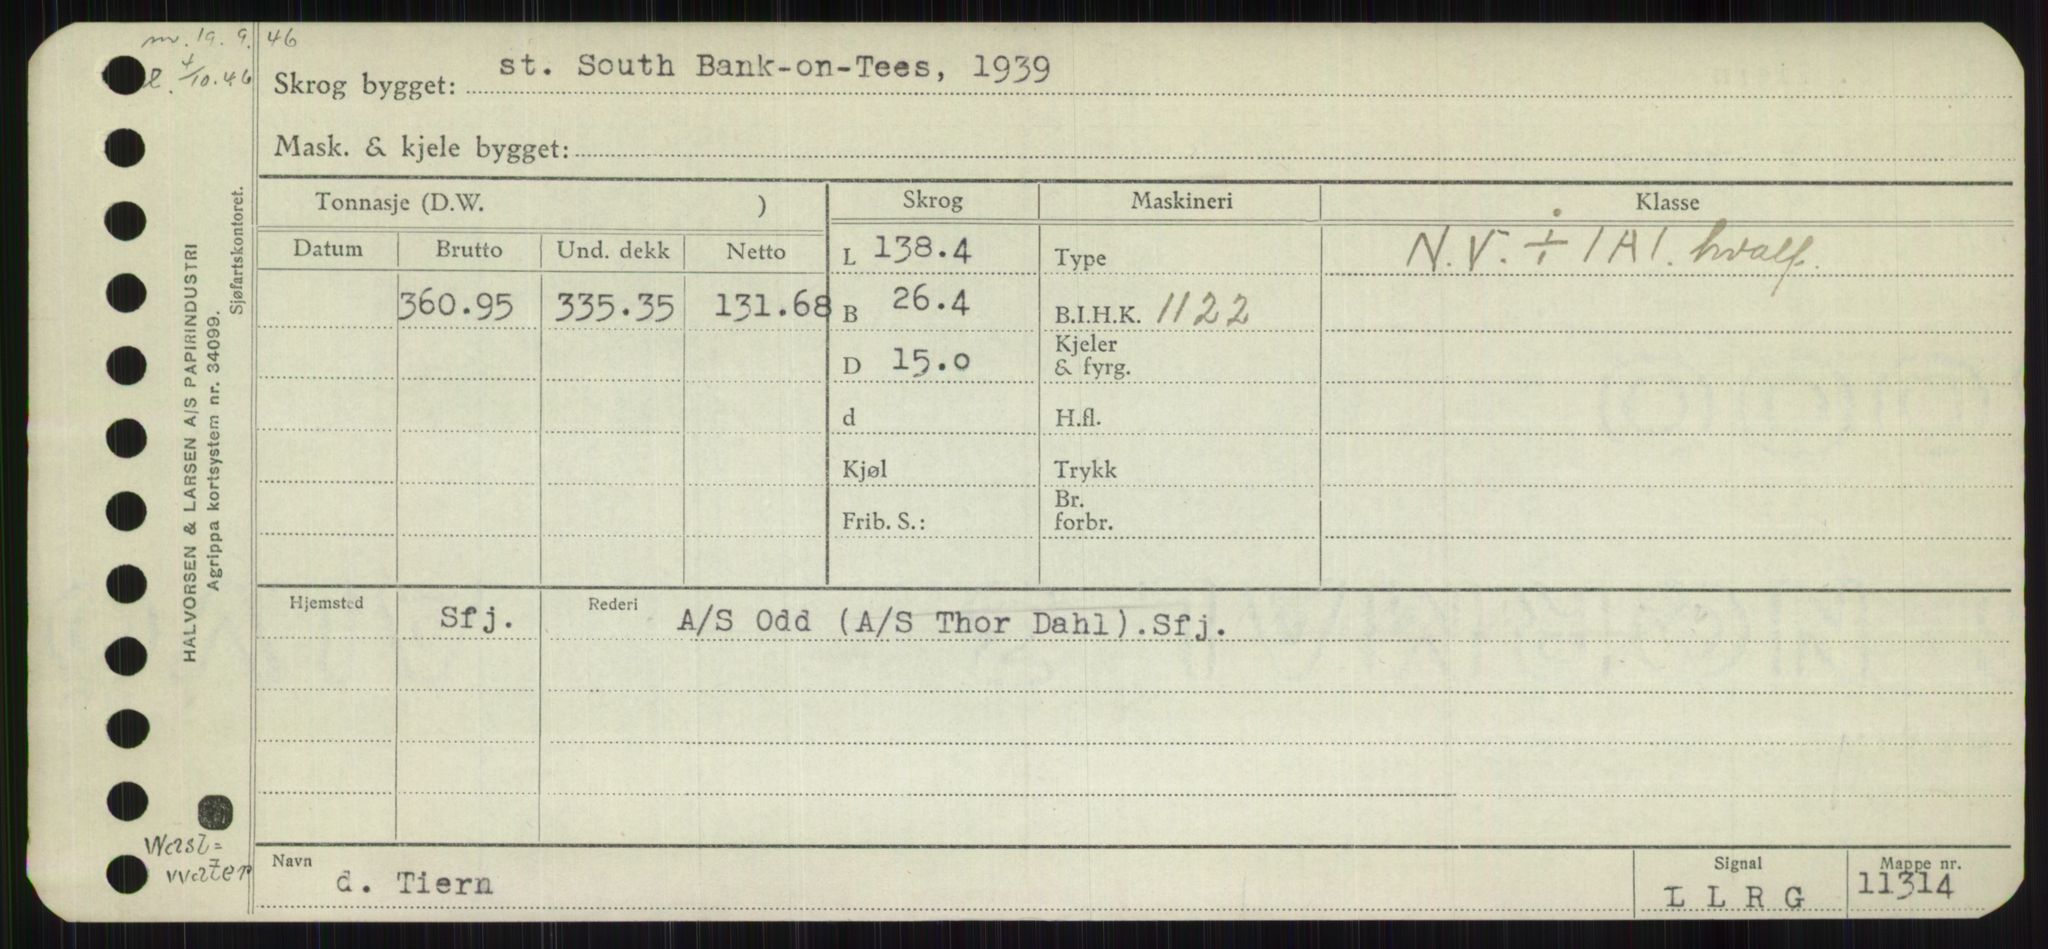 nv. 19. 9. 46
10.46
Skrog bygget: st. South Bank-on-Tees, 1939
Mask. & kjele bygget:
Tonnasje (D.W. )
Skrog
Maskineri
Klasse
Datum Brutto Und. dekk Netto
L 138.4
Type
N.V. ÷ 1A1. hvalf.
360.95 335.35 131.68
B 26.4
B.I.H.K. 1122
D 15.0
Kjeler
& fyrg.
d
H.fl.
Kjøl
Trykk
Frib. S.:
Br.
forbr.
Hjemsted Sfj.
Rederi A/S Odd (A/S Thor Dahl).Sfj.
Navn d. Tiern
Signal L L R G
Mappe nr. 11314
HALVORSEN & LARSEN A/S PAPIRINDUSTRI
Agrippa kortsystem nr. 34099.
Sjøfartskontoret.